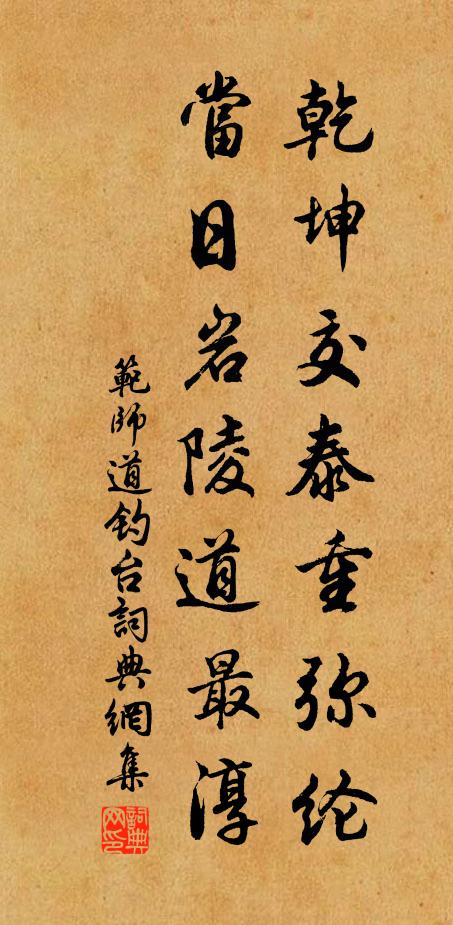 乾坤交泰重弥纶
當日岩陵道最淳
範師道钓台詞典網集
詞典网印